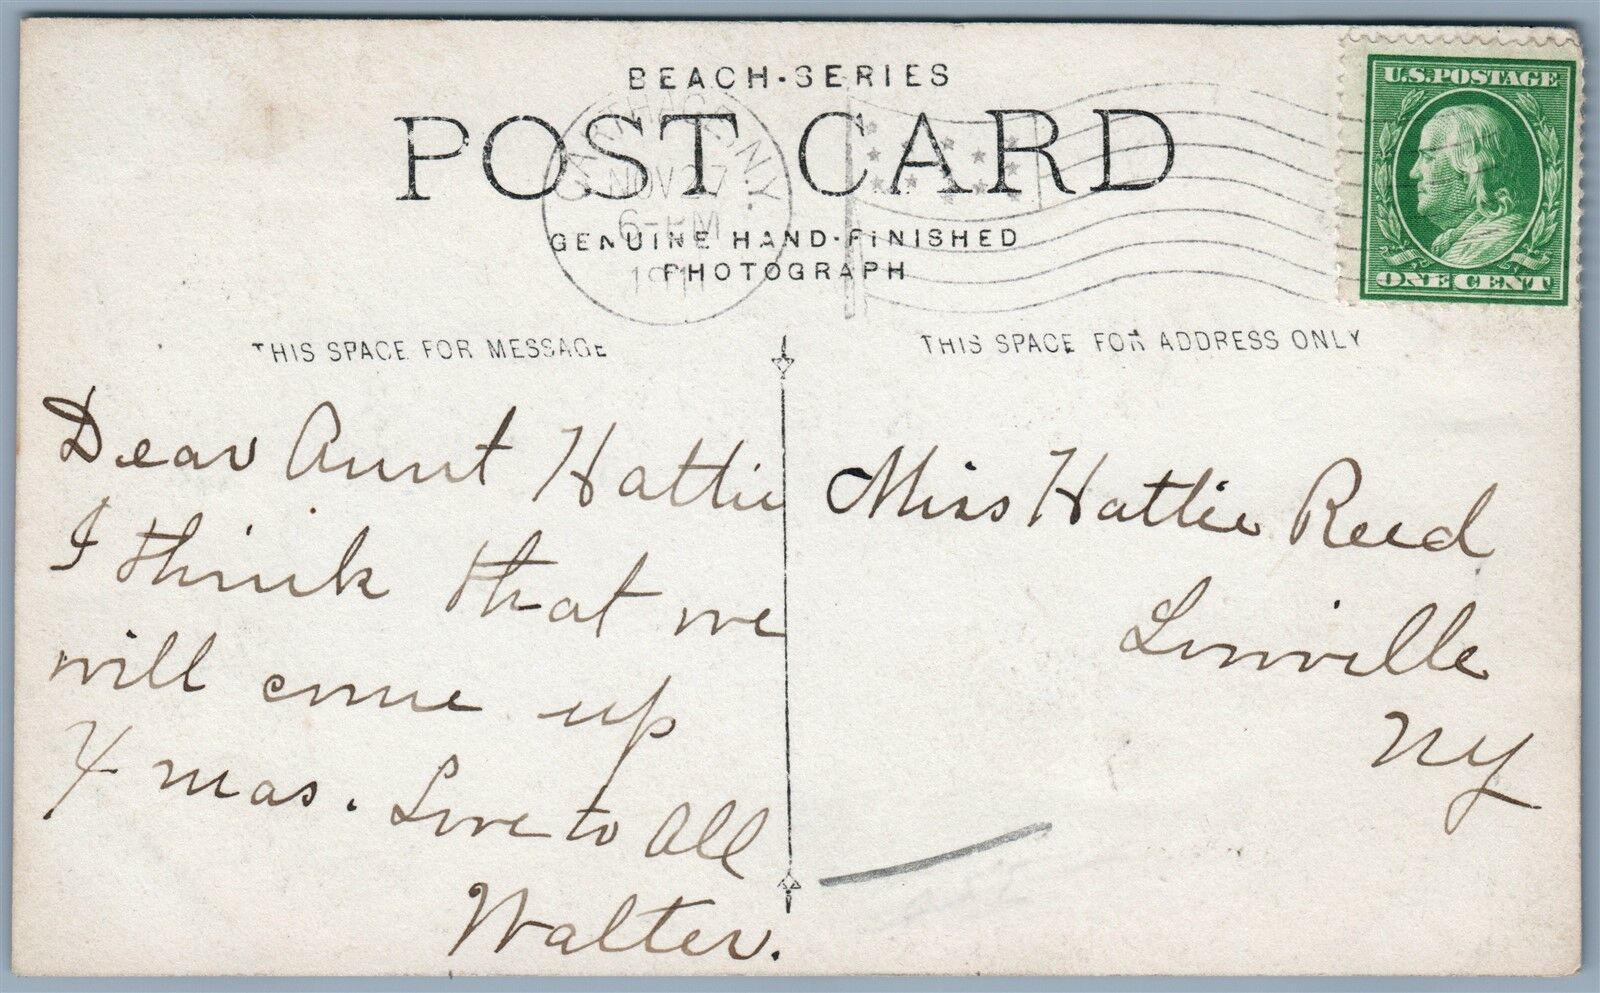 BEACH-SERIES
POST CARD
GENUINE HAND-FINISHED
PHOTOGRAPH
CARTHAGE, N.Y.
NOV 27
6-PM
1911
U.S. POSTAGE
ONE CENT
THIS SPACE FOR MESSAGE
Dear Aunt Hattie
I think that we
will come up
Xmas. Love to All
Walter.
THIS SPACE FOR ADDRESS ONLY
Miss Hattie Reed
Linville
NY